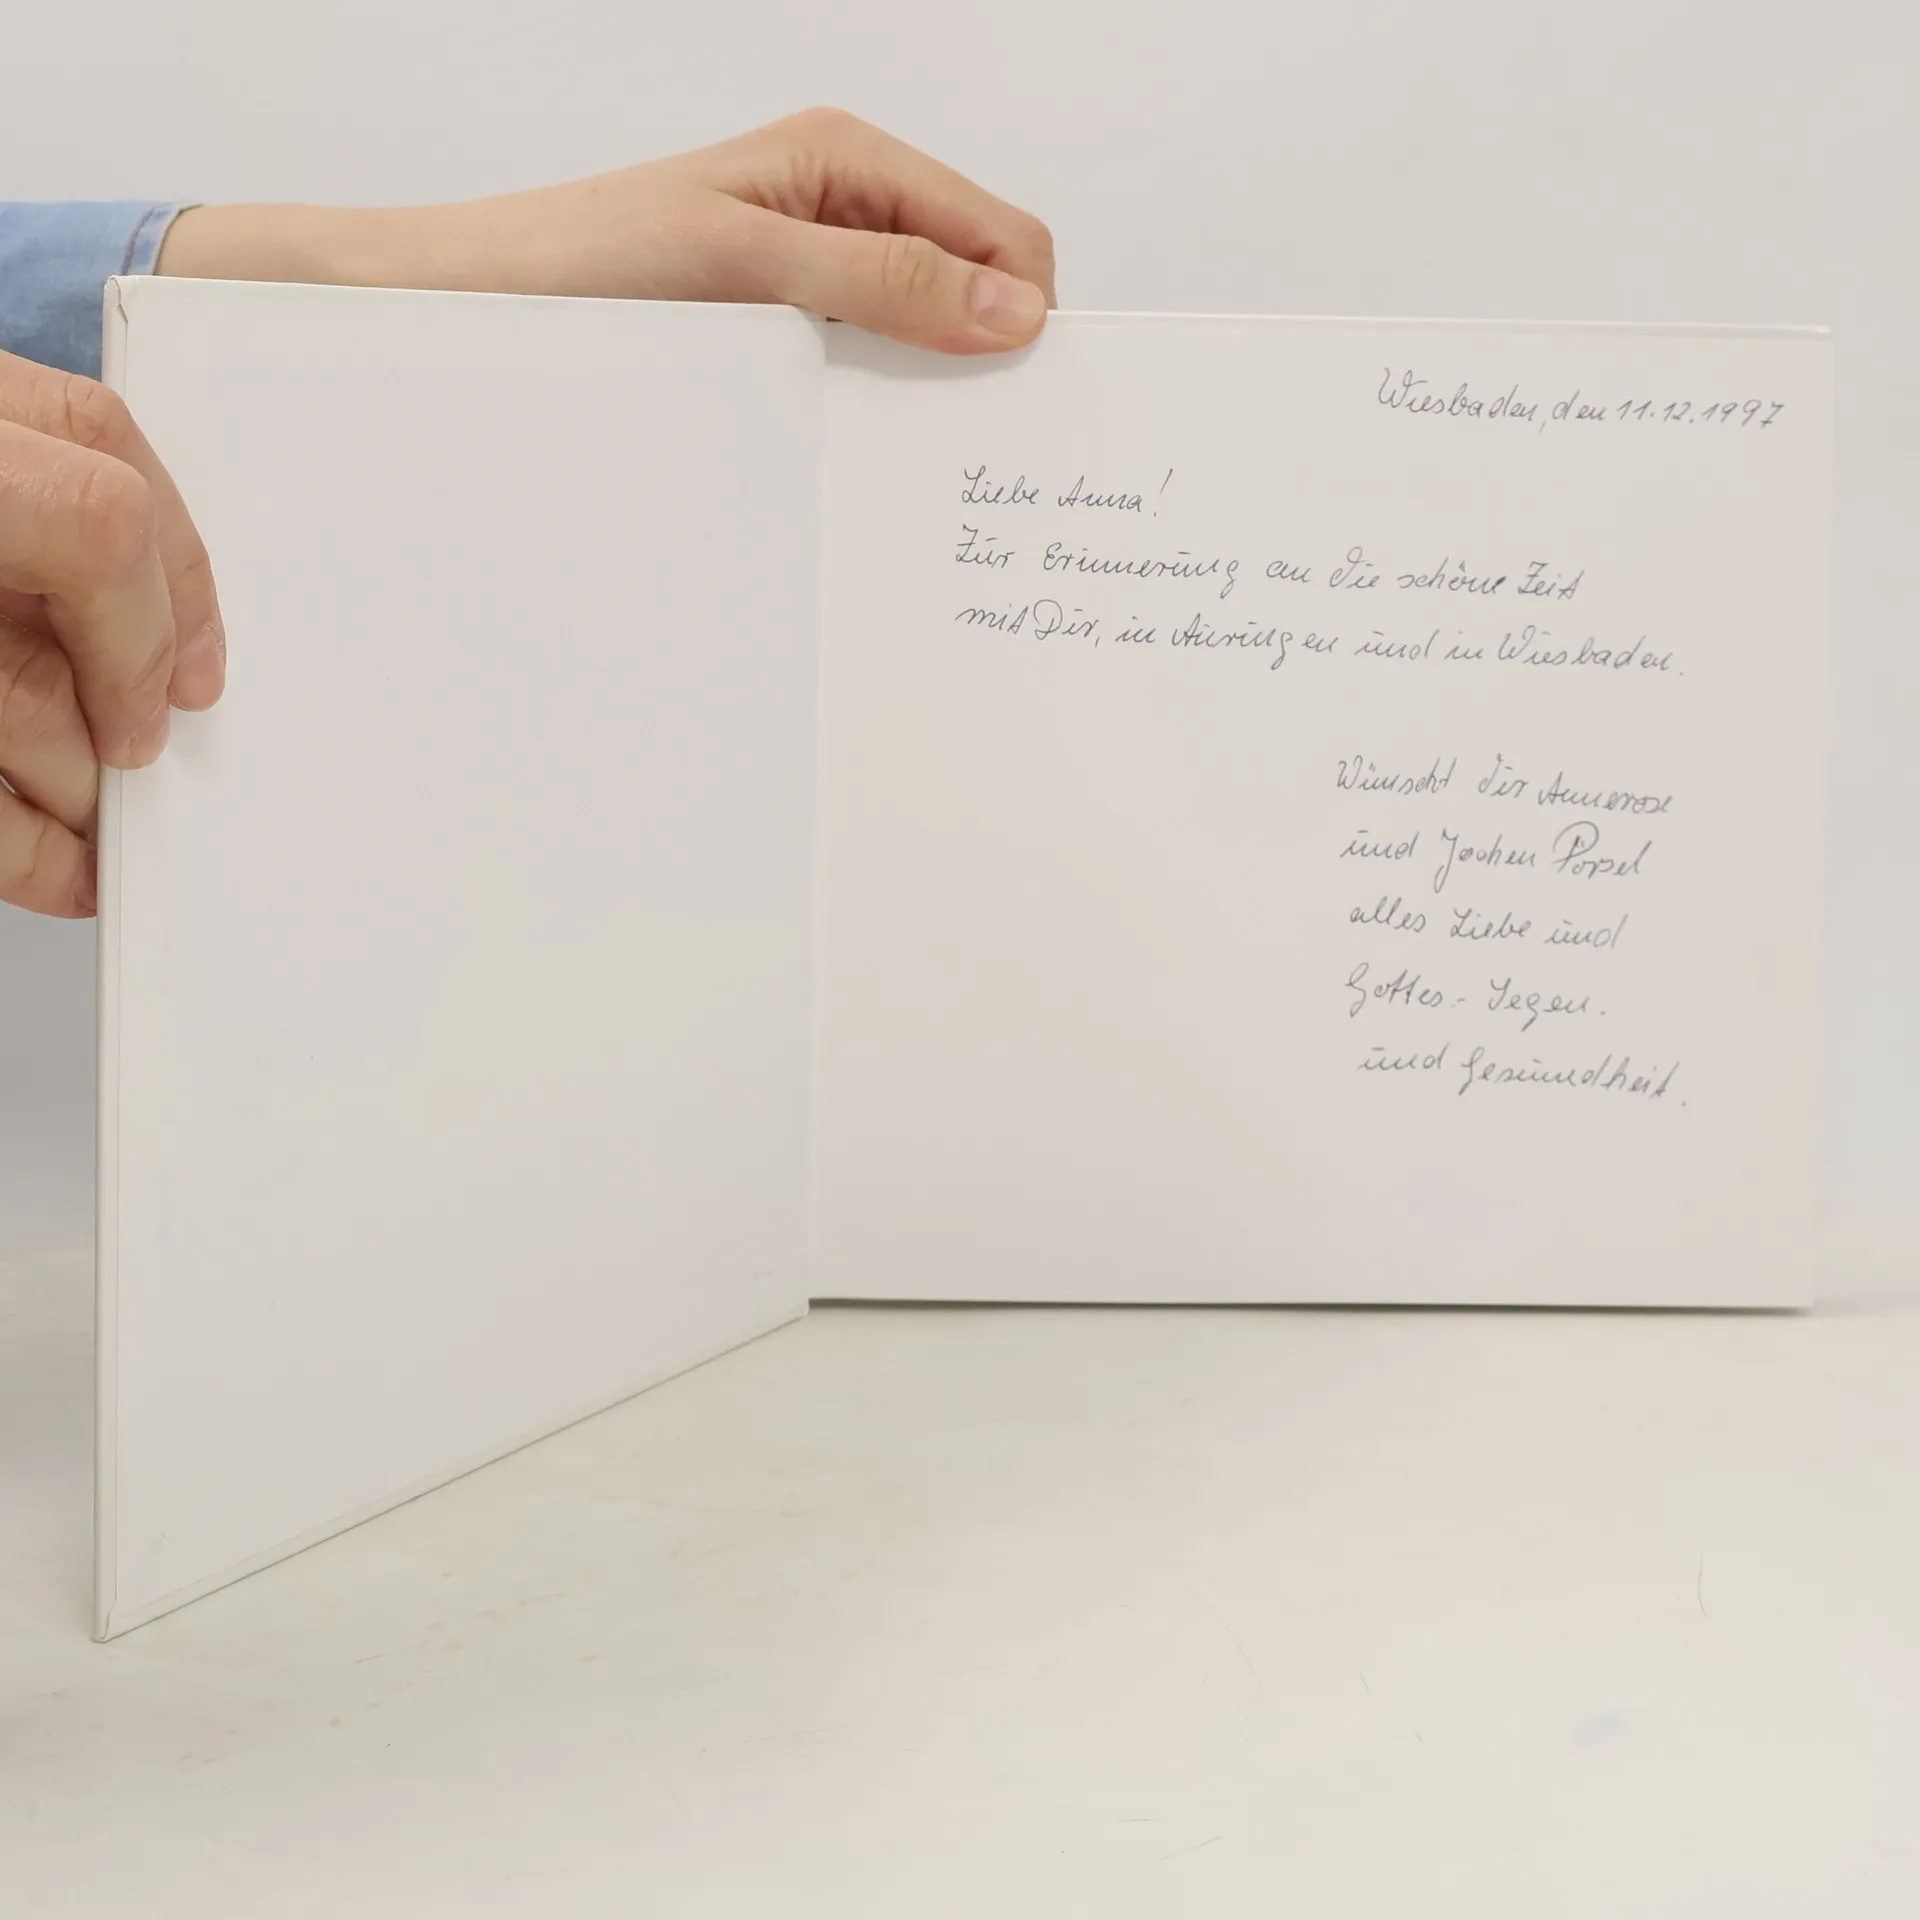 Wiesbaden, den 11.12.1997
Liebe Anna!
Zur Erinnerung an die schöne Zeit
mit Dir, in Auringen und in Wiesbaden.
Wünscht dir Annerose
und Jochen
alles Liebe und
Gottes-Segen.
und Gesundheit.